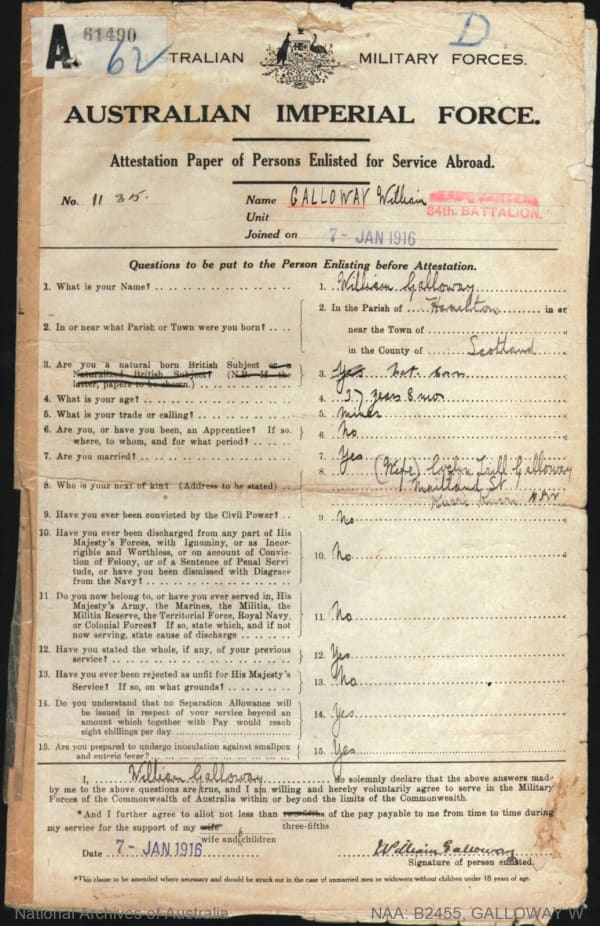 A. 61490
62
D
TRALIAN MILITARY FORCES.
AUSTRALIAN IMPERIAL FORCE.
Attestation Paper of Persons Enlisted for Service Abroad.
No. 1135. Name GALLOWAY William
Unit 34th. BATTALION.
Joined on 7- JAN 1916
Questions to be put to the Person Enlisting before Attestation.
1. What is your Name? 1. William Galloway
2. In or near what Parish or Town were you born? 2. In the Parish of Hamilton in or
near the Town of
in the County of Scotland
3. Are you a natural born British Subject or a 3. Yes Nat. born
Naturalized British Subject? (N.B. If the
latter, papers to be shown.)
4. What is your age? 4. 37 years 8 mos
5. What is your trade or calling? 5. Miner
6. Are you, or have you been, an Apprentice? If so, 6. No
where, to whom, and for what period?
7. Are you married? 7. Yes
8. Who is your next of kin? (Address to be stated) 8. (Wife) Galloway
Maitland St
Kurri Kurri NSW
9. Have you ever been convicted by the Civil Power? 9. No
10. Have you ever been discharged from any part of His 10. No
Majesty's Forces, with Ignominy, or as Incor-
rigible and Worthless, or on account of Convic-
tion of Felony, or of a Sentence of Penal Servi
tude, or have you been dismissed with Disgrace
from the Navy?
11 Do you now belong to, or have you ever served in, His 11. No
Majesty's Army, the Marines, the Militia, the
Militia Reserve, the Territorial Force, Royal Navy,
or Colonial Forces? If so, state which, and if not
now serving, state cause of discharge
12. Have you stated the whole, if any, of your previous 12. Yes
service?
13. Have you ever been rejected as unfit for His Majesty's 13. No
Service? If so, on what grounds?
14. Do you understand that no Separation Allowance will 14. Yes
be issued in respect of your service beyond an
amount which together with Pay would reach
eight shillings per day.
15. Are you prepared to undergo inoculation against smallpox 15. Yes
and enteric fever?
I, William Galloway do solemnly declare that the above answers made
by me to the above questions are true, and I am willing and hereby voluntarily agree to serve in the Military
Forces of the Commonwealth of Australia within or beyond the limits of the Commonwealth.
*And I further agree to allot not less than two-fifths of the pay payable to me from time to time during
my service for the support of my wife three-fifths
wife and children
Date 7- JAN 1916 William Galloway
Signature of person enlisted.
*This clause to be amended where necessary and should be struck out in the case of unmarried men or widowers without children under 18 years of age.
National Archives of Australia NAA: B2455, GALLOWAY W